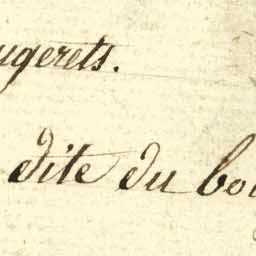 ugerets.
dite du bo